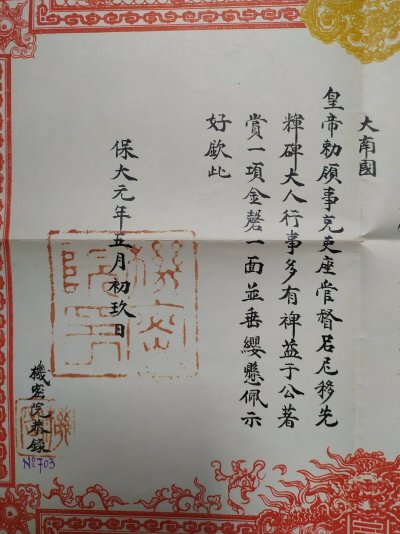 大南國
皇帝勅領事克吏座管督居尼移先
輝碑大人行事多有裨益于公著
賞一項金磬一面並垂纓懸佩示
好欽此
保大元年五月初玖日
機密院印
機密院恭錄
Nº 703